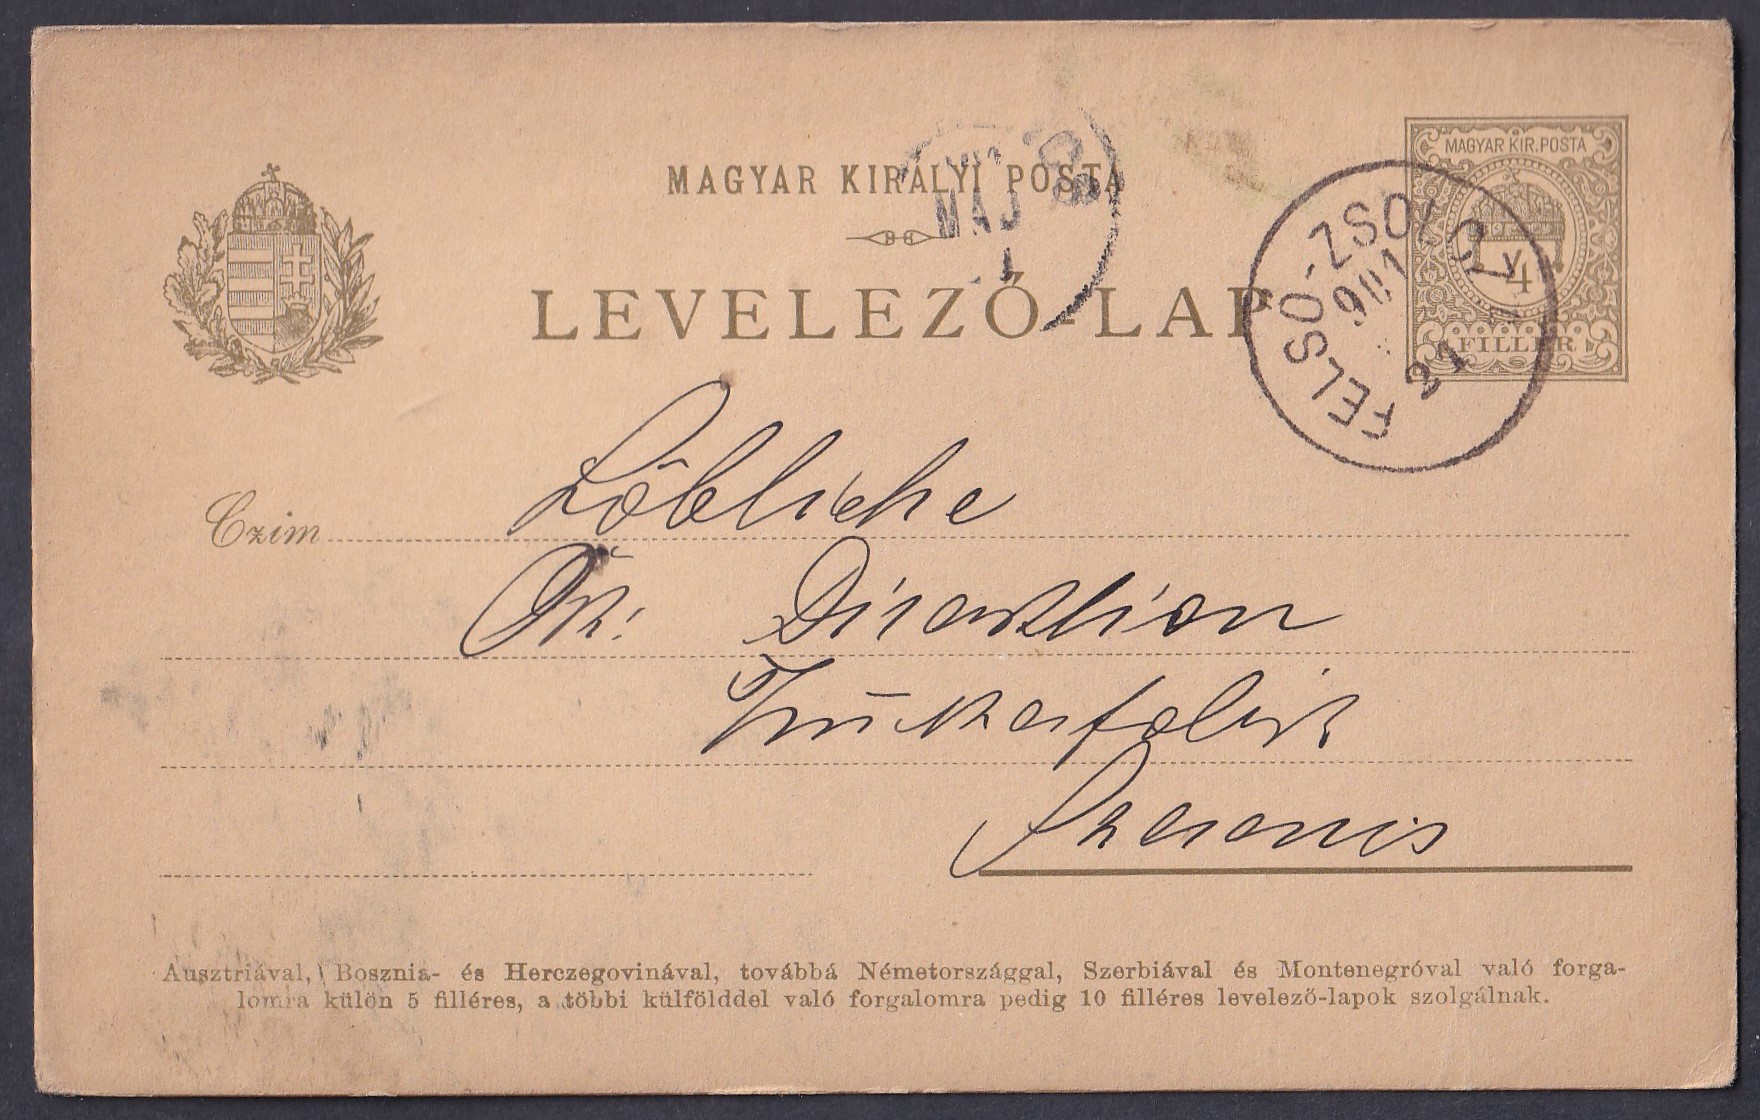 MAGYAR KIR. POSTA
4
FILLÉR
MAGYAR KIRÁLYI POSTA
MÁJ
1
LEVELEZŐ-LAP
FELSŐ-ZSOLCZA
901
Czim
Löbliche
Direktion
Szerencs
Ausztriával, Bosznia- és Herczegovinával, továbbá Németországgal, Szerbiával és Montenegróval való forga-
lomra külön 5 filléres, a többi külfölddel való forgalomra pedig 10 filléres levelező-lapok szolgálnak.